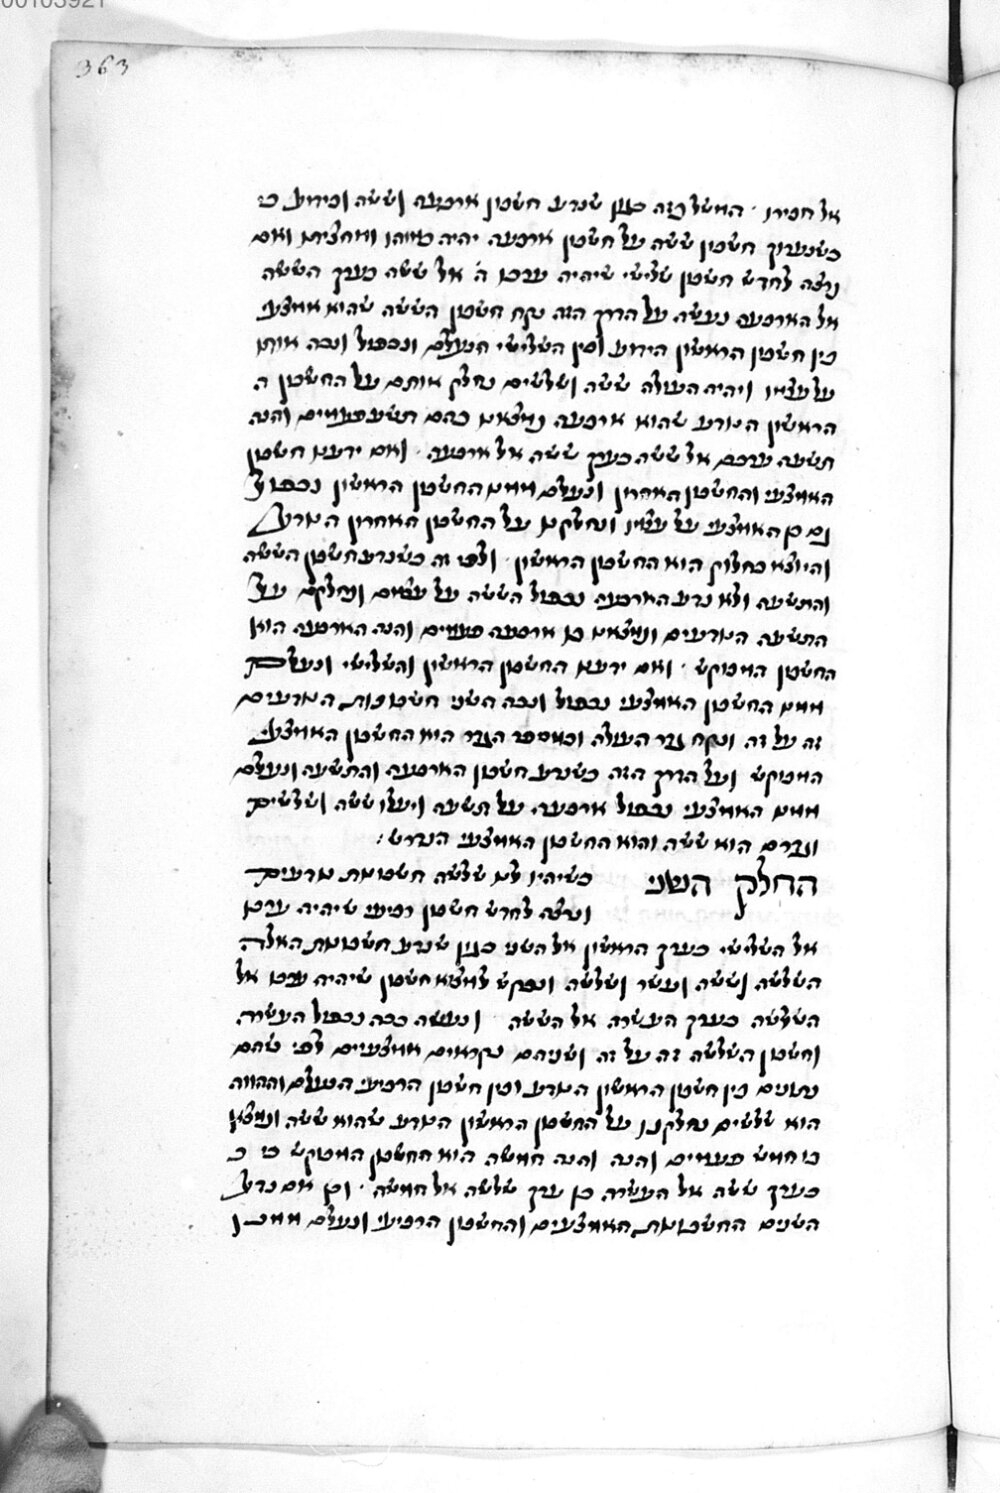 363
אל חבירו · המשל בזה כגון שנדע חשבון ארבעה וששה ובידוע כי
כשנערוך חשבון ששה על חשבון ארבעה יהיה כמוהו ומחציתו ואם
נרצה לחדש חשבון שלישי שיהיה ערכו ה' אל ששה כערך הששה
אל הארבעה נעשה על הדרך הזה נקח חשבון הששה שהוא אמצעי
בין חשבון הראשון הידוע ובין השלישי הנעלם ונכפול ונכה אותו
על עצמו ויהיה העולה ששה ושלשים נחלק אותם על החשבון ה
הראשון הנודע שהוא ארבעה נמצא בהם תשע פעמים והנה
תשעה ערכם אל ששה כערך ששה אל ארבעה · ואם ידענו חשבון
האמצעי והחשבון האחרון ונעלם ממנו החשבון הראשון נכפול
גם כן האמצעי על עצמו ונחלקנו על החשבון האחרון הנודע
והיוצא בחלוק הוא החשבון הראשון · ולפי זה כשנדע חשבון הששה
והתשעה ולא נדע הארבעה נכפול הששה על עצמם ונחלקם על
התשעה הנודעים ונמצא בו ארבעה פעמים והנה הארבעה הוא
החשבון המבוקש · ואם ידענו החשבון הראשון והשלישי ונעלם
ממנו החשבון האמצעי נכפול ונכה השני חשבונות הנודעים
זה על זה ונקח גדר העולה וכמספר הגדר הוא החשבון האמצעי
המבוקש ועל הדרך הזה כשנדע חשבון הארבעה והתשעה ונעלם
ממנו האמצעי נכפול ארבעה על תשעה ויעלו ששה ושלשים
וגדרם הוא ששה והוא החשבון האמצעי הנדרש :
החלק השני כשיהיו לנו שלשה חשבונות נודעים
ונרצה לחדש חשבון רביעי שיהיה ערכו
אל השלישי כערך הראשון אל השני כגון שנדע חשבונות האלה
השלשה וששה ועשר ושלשה ונבקש למצוא חשבון שיהיה ערכו אל
השלשה כערך העשרה אל הששה · ונעשה ככה נכפול העשרה
וחשבון השלשה זה על זה ושניהם נקראים אמצעיים לפי שהם
נתונים בין חשבון הראשון הנודע ובין חשבון הרביעי הנעלם וההווה
הוא שלשים נחלקנו על החשבון הראשון הנודע שהוא ששה ונמצא
בו חמש פעמים והנה והנה חמשה הוא החשבון המבוקש כי כ
כערך ששה אל העשרה כן ערך שלשה אל חמשה · וכן אם נדע
השנים החשבונות האמצעים והחשבון הרביעי ונעלם ממנו